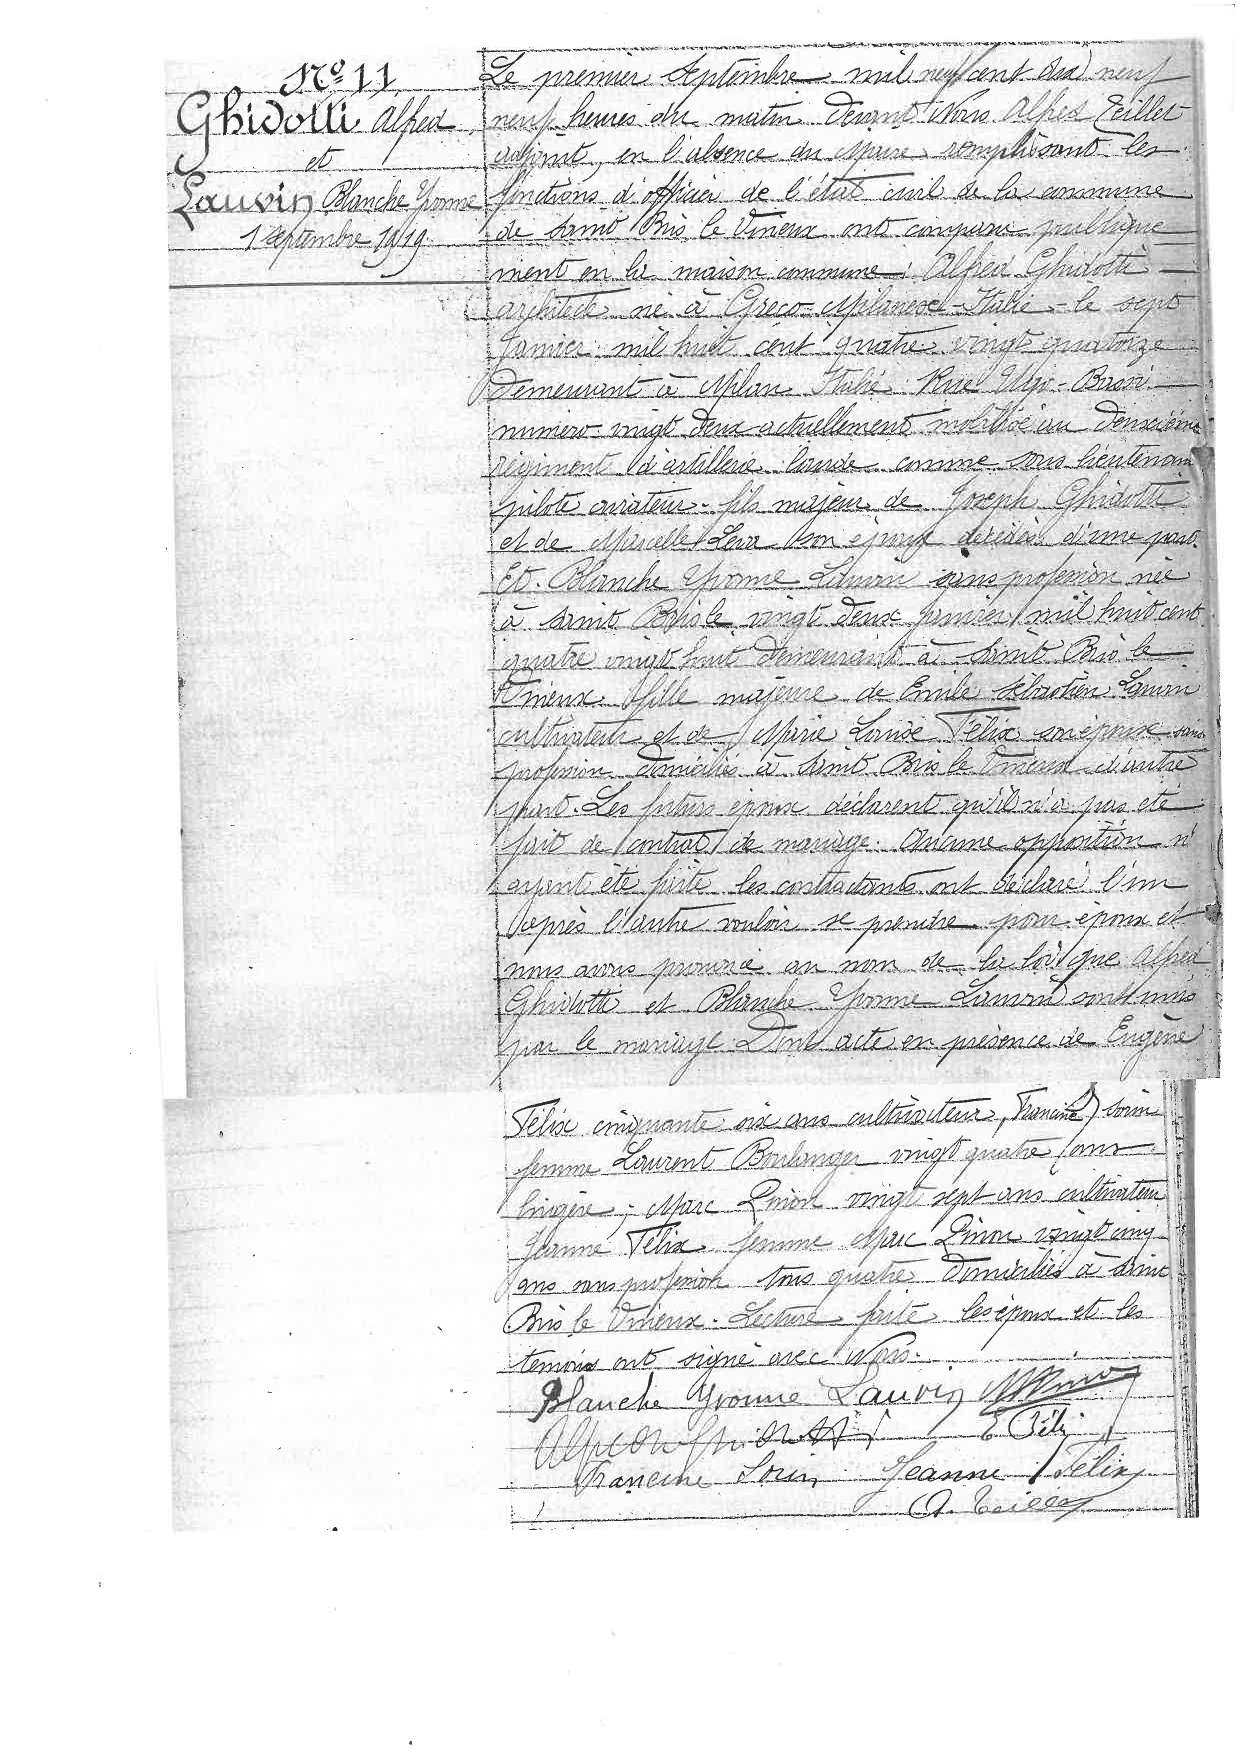 No 11
Ghidotti Alfred
et
Lauvin Blanche Yvonne
1 Septembre 1919
Le premier Septembre mil neuf cent dix neuf
neuf heures du matin devant Nous Alfred Teillet
adjoint, en l'absence du Maire remplissant les
fonctions d'officier de l'état civil de la commune
de Saint Bris le Vineux ont comparu publique
ment en la maison commune: Alfred Ghidotti
architecte né à Greco-Milanese-Italie-le sept
Janvier mil huit cent quatre vingt quatorze
demeurant à Milan Italie Rue Ugo-Bassi
numéro vingt deux actuellement mobilisé au deuxième
régiment d'artillerie lourde comme sous lieutenant
pilote aviateur- fils majeur de Joseph Ghidotti
et de Marcelle son époux décédés d'une part.
Et. Blanche Yvonne Lauvin sans profession née
à Saint Bris le vingt deux janvier mil huit cent
quatre vingt huit demeurant à Saint Bris le
Vineux fille majeure de Emile Sébastien Lauvin
cultivateur et de Marie Louise Félix son épouse sans
profession domiciliés à Saint Bris le Vineux d'autre
part. Les futurs époux déclarent qu'il n'a pas été
fait de contrat de mariage. Aucune opposition n'
ayant été faite les contractants ont déclaré l'un
après l'autre vouloir se prendre pour époux et
nous avons prononcé au nom de la loi que Alfred
Ghidotti et Blanche Yvonne Lauvin sont unis
par le mariage Dont acte en présence de Eugène
Félix cinquante six ans cultivateur, Francine Sorin
femme Laurent Boulanger vingt quatre ans
lingère; Marc Pinon vingt sept ans cultivateur
Jeanne Félix femme Marc Pinon vingt cinq
ans sans profession tous quatre domiciliés à Saint
Bris le Vineux. Lecture faite les époux et les
temoins ont signé avec Nous.
Blanche Yvonne Lauvin
E Félix
Francine Sorin Jeanne Félix